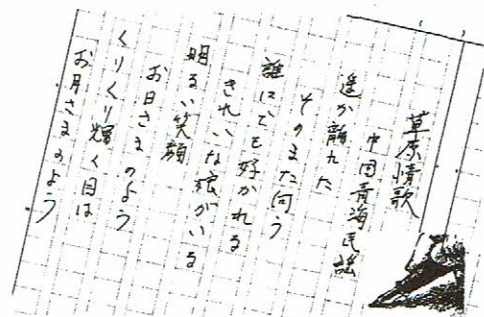 草原情歌
中国青海民謡
遙か離れた
そのまた向う
誰にでも好かれる
きれいな娘がいる
明るい笑顔
お日さまのよう
くりくり輝く目は
お月さまのよう